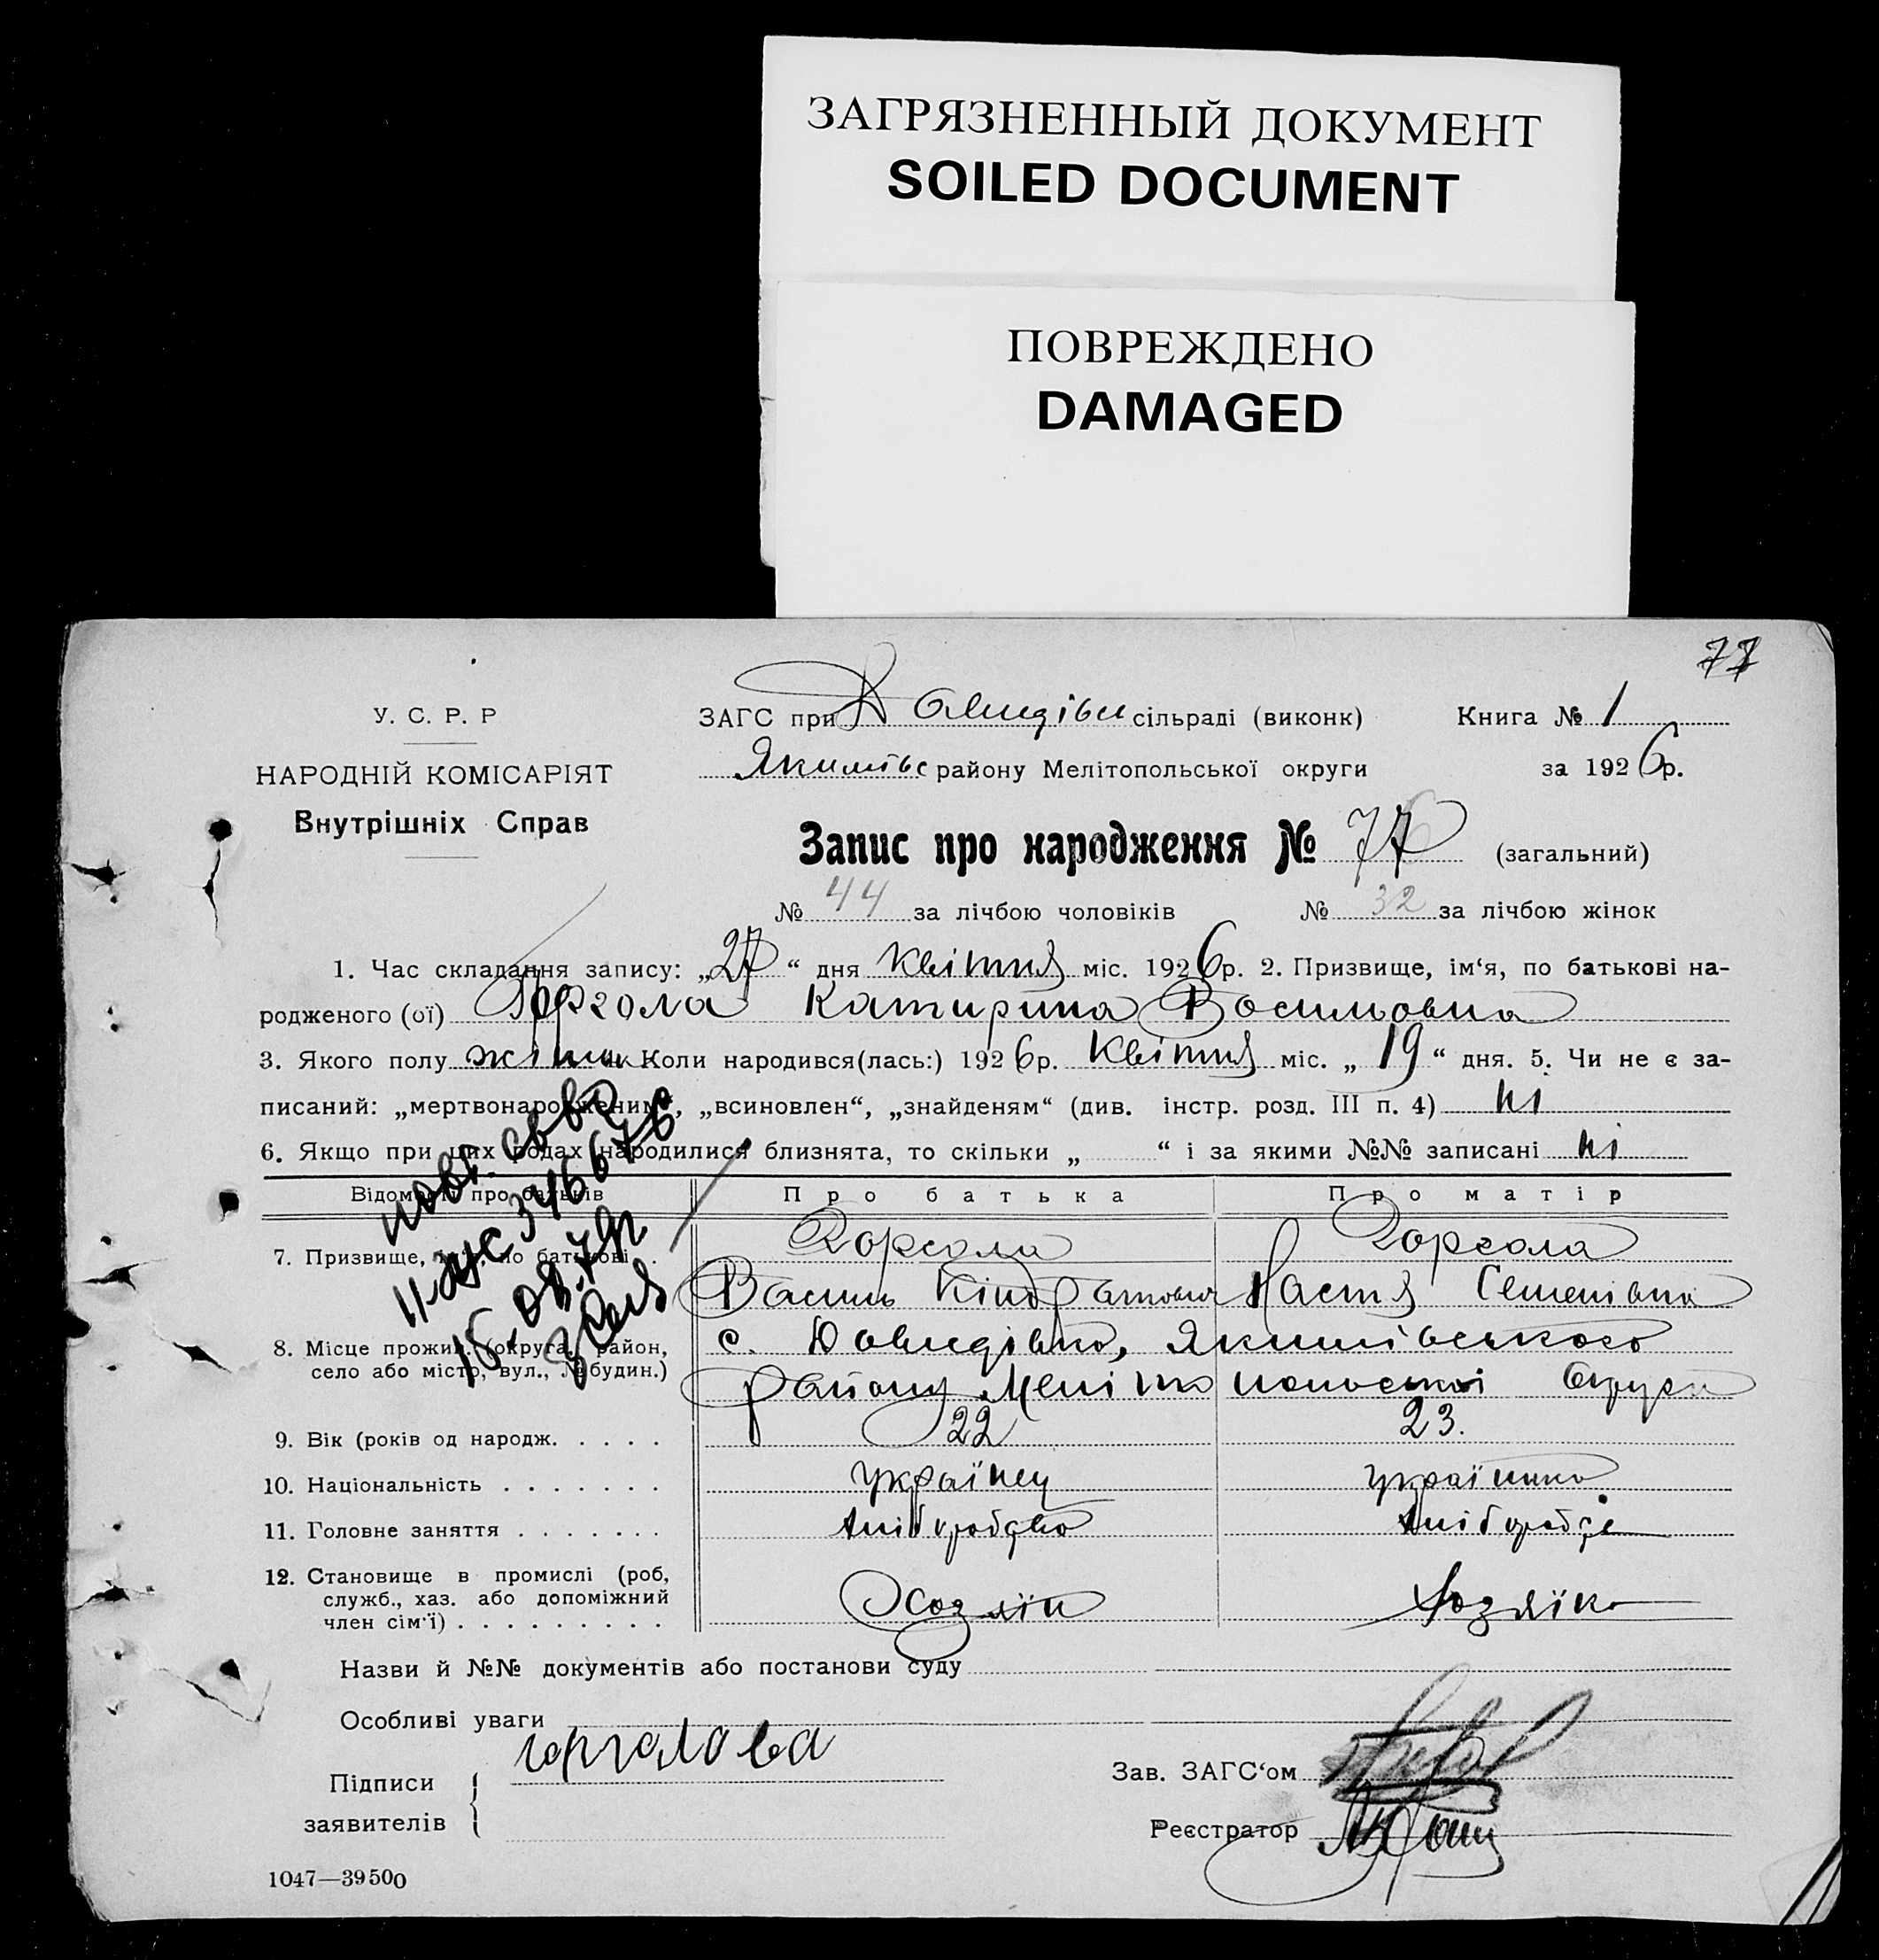 ЗАГРЯЗНЕННЫЙ ДОКУМЕНТ
SOILED DOCUMENT
ПОВРЕЖДЕНО
DAMAGED
77
У. С. Р. Р
НАРОДНІЙ КОМІСАРІЯТ
Внутрішніх Справ
ЗАГС при Давидівск сільраді (виконк) Книга № 1
Якимівс району Мелітопольської округи за 1926 р.
Запис про народження № 77 (загальний)
№ 44 за лічбою чоловіків № 32 за лічбою жінок
1. Час складання запису: „27“ дня Квітня міс. 1926 р. 2. Призвище, ім‘я, по батькові на-
родженого (ої) Горгола Катирина Василовна
3. Якого полу жіноч Коли народився(лась:) 1926 р. Квітня міс. „19“ дня. 5. Чи не є за-
писаний: „мертвонародженим“, „всиновлен“, „знайденям“ (див. інстр. розд. III п. 4) ні
6. Якщо при цих родах народилися близнята, то скільки „ “ і за якими №№ записані ні
повт. св во
II-ЖС 346676
Відомости про батьків Про батька Про матір
7. Призвище, ім‘я, по батькові Горгола Горгола
Василь Кіндратович Настя Семенівна
8. Місце прожив. (округа, район, село або місто, вул., № будин.) с. Давидівка, Якимівського
району Мелітопольської Округи
9. Вік (років од народж. . . . . 22 23.
10. Національність . . . . . . . українец українка
11. Головне заняття . . . . . . . хліборобство
12. Становище в промислі (роб,
служб., хаз. або допоміжний
член сім‘ї) . . . . . . . . . Хозяїн Хозяїка
Назви й №№ документів або постанови суду
Особливі уваги
Підписи
заявителів
горголова
Зав. ЗАГС‘ом
Реєстратор
1047—39500